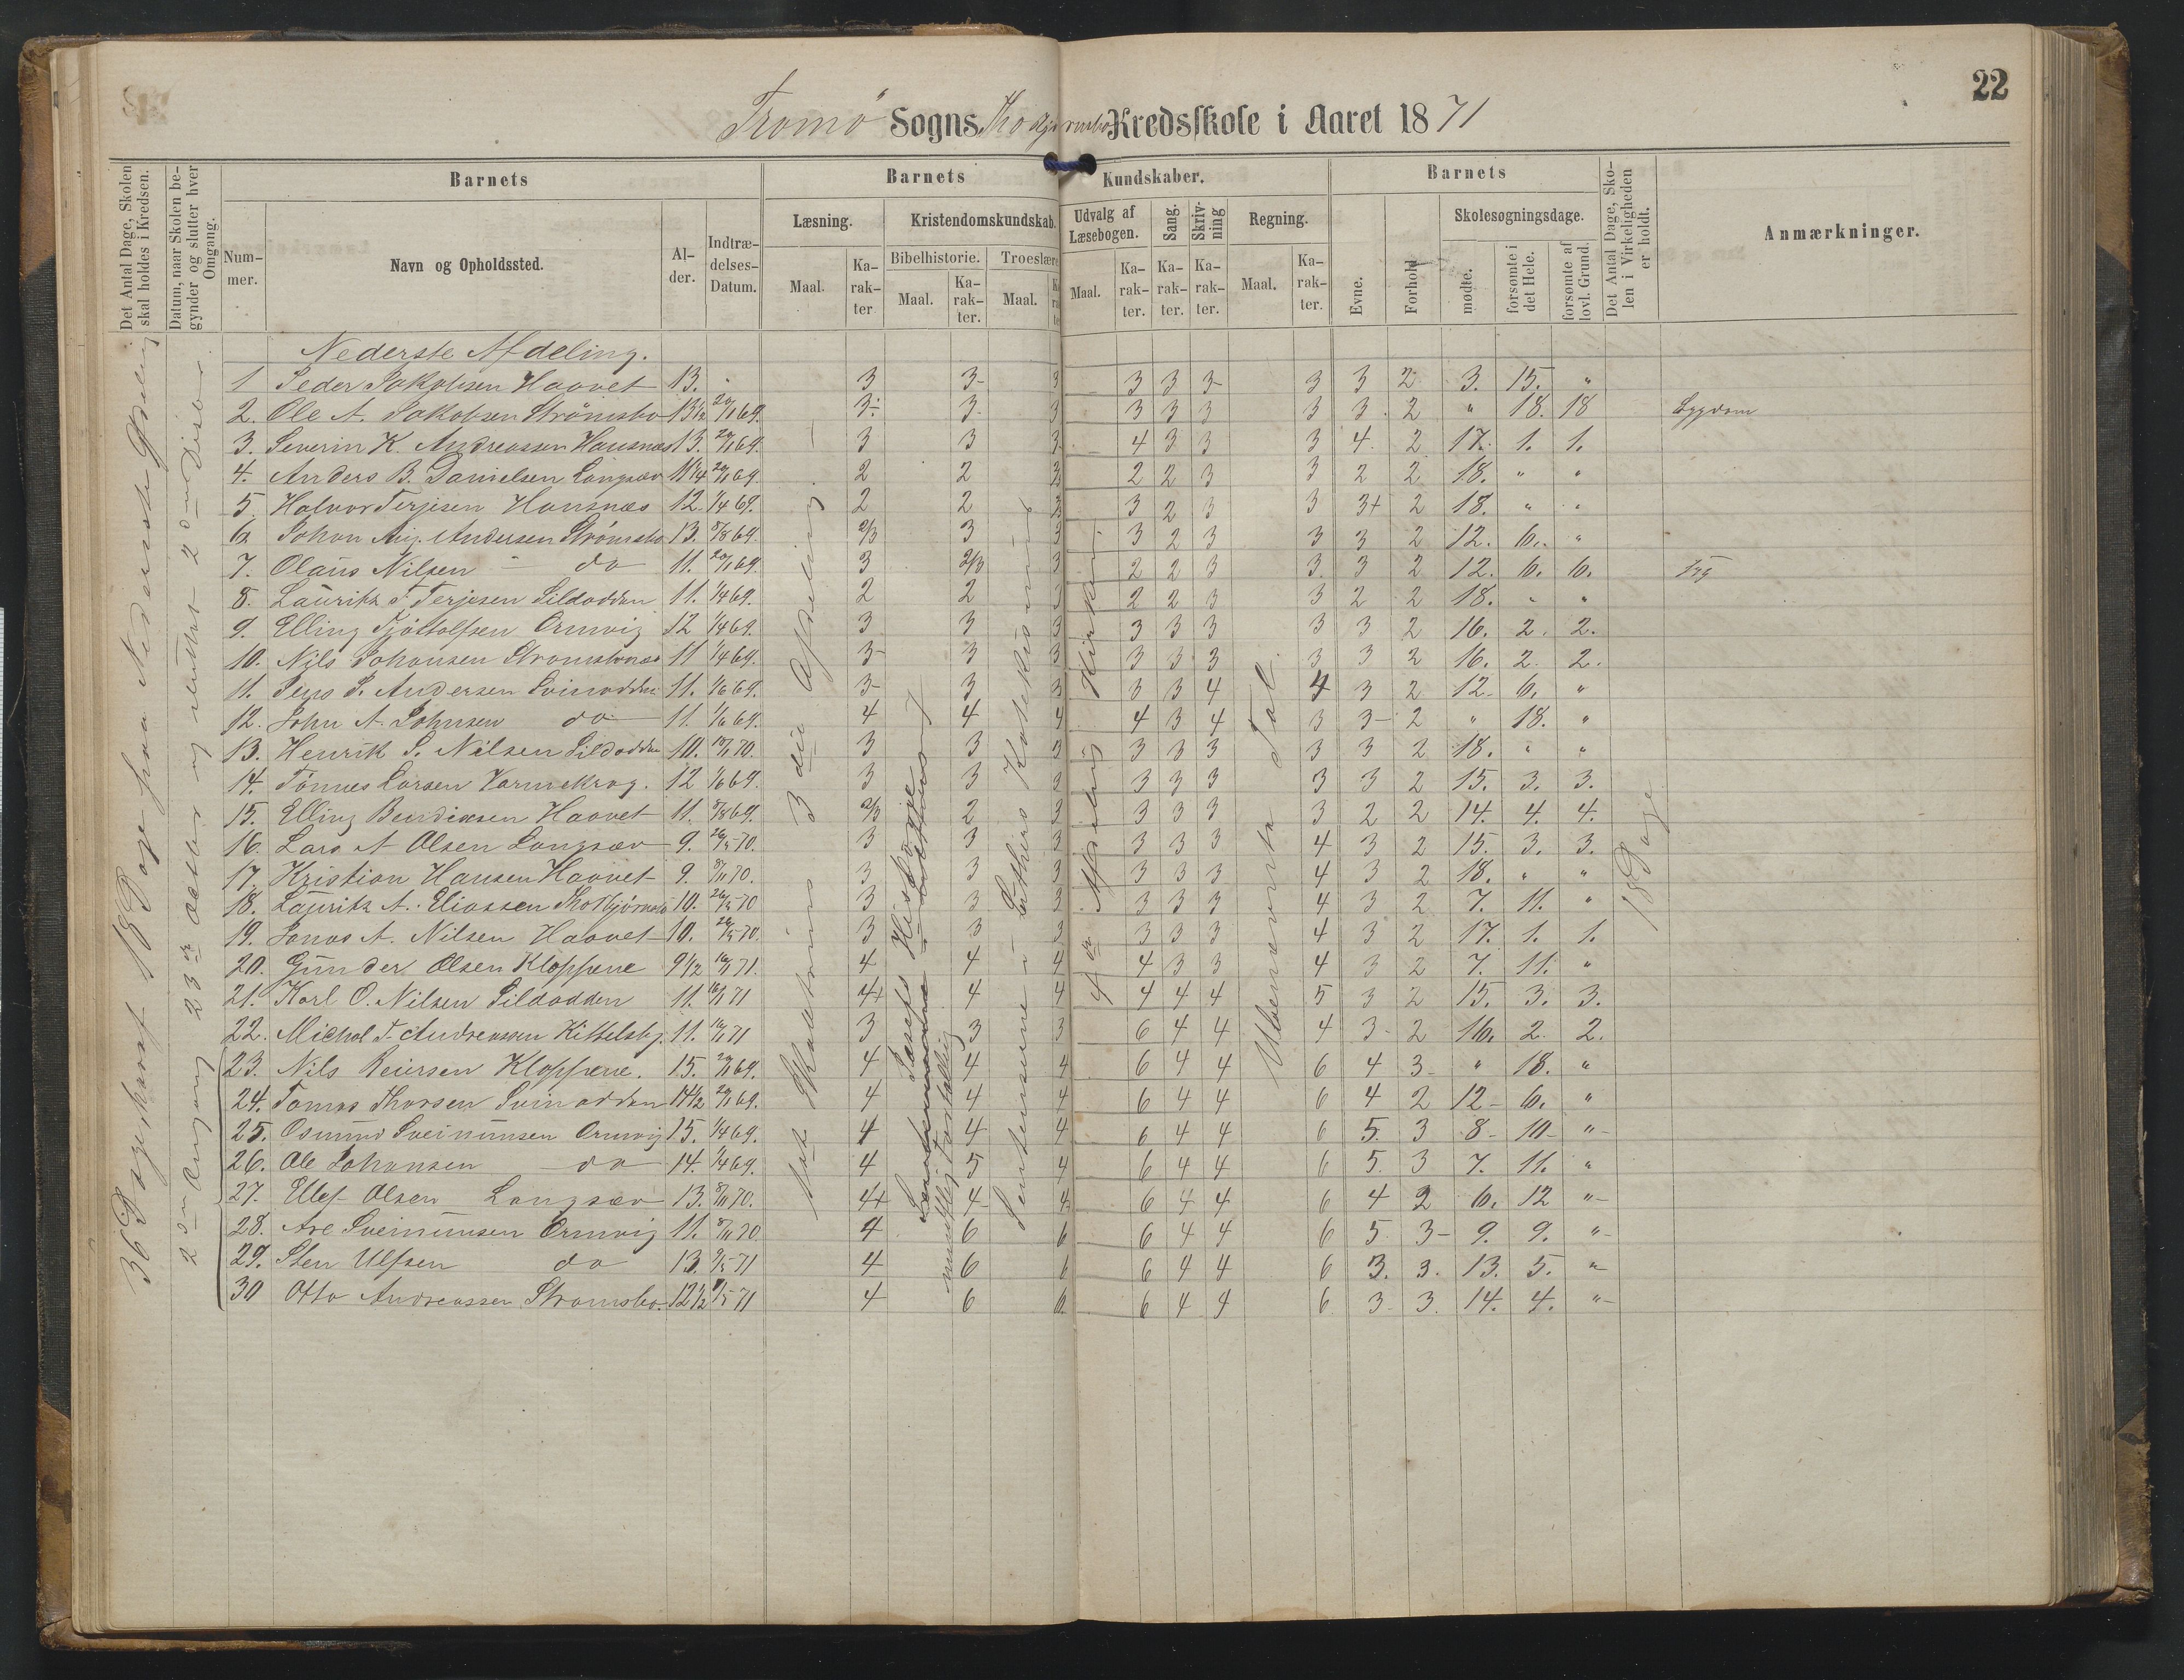 22
Tromø Sogns Thorbjørnsbo Kredsskole i Aaret 1871
Det Antal Dage, Skolen skal holdes i Kredsen.
Datum, naar Skolen begynder og slutter hver Omgang.
Barnets
Barnets Kundskaber.
Barnets
Det Antal Dage, Skolen i Virkeligheden er holdt.
Anmærkninger.
Nummer.
Navn og Opholdssted.
Alder.
Indtrædelses-Datum.
Læsning.
Kristendomskundskab.
Udvalg af Læsebogen.
Sang.
Skrivning
Regning.
Evne.
Forhold
Skolesøgningsdage.
Bibelhistorie.
Troeslære
Maal.
Karakter
mødte.
forsømte i det Hele.
forsømte af lovl. Grund.
36 Dage, hvoraf 18 Dage paa Nederste Afdeling
2den Omgang 23de October og sluttet 2den Decbr.
3die Afdeling
4de Afdeling
Luthers Katekismus
Ubenævnte Tal
18 Dage
Nederste Afdeling.
1 Peder Jakobsen Haavet 13. " 3 3- 3 3 3 3- 3 3 2 3. 15. "
2. Ole A. Jakobsen Strømsbo 13½ 29/1169. 3- 3- 3 3 3 3 3 3. 2 " 18. 18 Sygdom
3. Severin K. Andreassen Hausnæs 13. 29/1169. 3 3 3 4 3 3 3 4. 2 17. 1. 1.
4. Anders B. Danielsen Langsæv 11¼ 29/1169. 2 2 3 2 2 3 3 2 2 18. " "
5. Halvor Terjesen Hausnæs 12. 1/469. 2 2 3 3 2 3 3 3+ 2 18. " "
6. Johan Aug. Andersen Strømsbo 13. 8/869. 2/3 3 3 3 2 3 3 3 2 12. 6. "
7. Olaus Nilsen do 11. 29/1169. 3 2/3 3 2 2 3 3 3 2 12. 6. 6. Syg
8. Lauritz T. Terjesen Sildodden 11. 1/469. 2 2 3 2 2 3 3 2 2 18. " "
9. Elling Tjøstolfsen Ormvig 12 1/469. 3 3 3 3 3 3 3 3 2 16. 2. 2.
10. Nils Johansen Strømsbonæs 11 1/469. 3- 3 3 3 3 3 3 3 2 16. 2. 2.
11. Jens P. Andersen Svinodden 11. 1/669. 3- 3 3 3 3 4 4 3 2 12- 6. "
12. John A. Johnsen do 11. 1/669. 4 4 4 4 3 4 3 3- 2 " 18. "
13. Henrik S. Nilsen Sildodden 10. 3 3 3 3 3 3 3 3 2 18. " "
14. Tønnes Larsen Varmekrog. 12 1/669. 3 3 3 3 3 3 3 3 2 15. 3. 3.
15. Elling Bendixsen Haavet 11. 8/869. 2/3 2 3 3 3 3 3 2 2 14. 4. 4.
16. Lars A Olsen Langsæv 9. 26/570. 3 3 3 3 3 3 4 3 2 15. 3. 3.
17. Kristian Hansen Haavet 9. 8/1170. 3 3 3 3 3 3 4 3 2 18. " "
18. Lauritz A. Eliassen Thorbjørnsbo 10. 26/570 3 3 3 3 3 3 4 3 2 7. 11. "
19. Jonas A. Nilsen Haavet 10. 26/570. 3 3 3 3 3 3 4 3 2 17. 1. 1.
20. Gunder Olsen Kloppene 9½ 16/171. 4 4 4 4 3 3 4 3 2 7. 11. "
21. Karl O. Nilsen Sildodden 11. 16/171 4+ 4 4 4 4 4 5 3 2 15. 3. 3.
22. Michal T. Andreassen Kittelsbg. 11. 16/171 3 3 3 6 4 4 4 3- 2 16. 2. 2.
23. Nils Reiersen Kloppene. 15. 29/1169. 4 4 4 6 4 4 6 4 3- " 18. "
24. Tomas Thorsen Svinodden 14½ 29/1169. 4 4 4 6 4 4 6 4 2 12- 6. "
25. Osmund Sveinunsen Ormvig 15. 1/469. 4 4 4 6 4 4 6 5. 3 8- 10- "
26. Ole Johansen do 14. 1/469. 4 5 4 6 4 4 6 5. 3 7. 11. "
27. Ellef Olsen Langsæv 13. 8/1170. 4+ 4- 4 6 4 4 6 4 2 6. 12 "
28. Are Sveinunsen Ormvig 11. 8/1170 4 6 6 6 4 4 6 5 3- 9. 9. "
29. Sten Ulfsen do 13. 9/571 4 6 6 6 4 4 6 3. 3. 13. 5. "
30 Otto Andreassen Strømsbo. 12½ 9/571 4 6 6 6 4 4 6 3 3. 14. 4. "